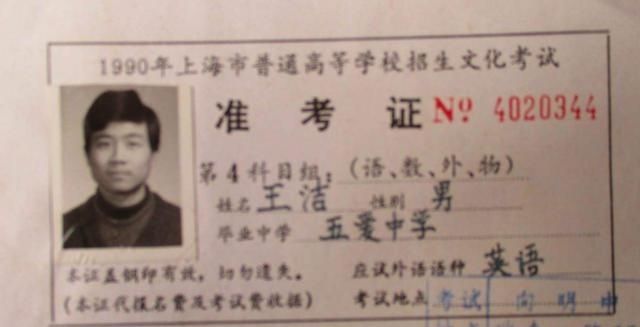 1990年上海市普通高等学校招生文化考试
准考证 Nº 4020344
第4科目组:(语、数、外、物)
姓名 王洁 性别 男
毕业中学 五爱中学
本证盖钢印有效,切勿遗失。 应试外语语种 英语
(本证代报名费及考试费收据) 考试地点 考试 向明中